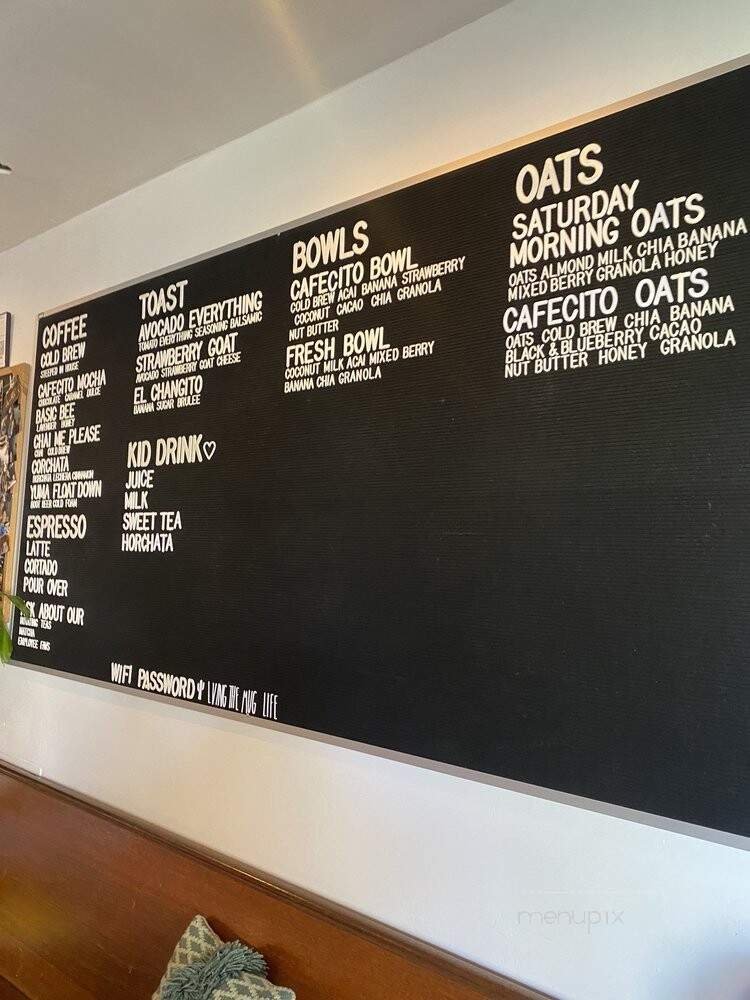 COFFEE
COLD BREW
STEEPED IN HOUSE
CAFECITO MOCHA
CHOCOLATE CARAMEL DULCE
BASIC BEE
LAVENDER HONEY
CHAI ME PLEASE
CHAI COLD BREW
CORCHATA
HORCHATA LECHERA CINNAMON
YUMA FLOAT DOWN
ROOT BEER COLD FOAM
ESPRESSO
LATTE
CORTADO
POUR OVER
ASK ABOUT OUR
TEAS
MATCHA
EMPLOYEE FAVS
TOAST
AVOCADO EVERYTHING
TOMATO EVERYTHING SEASONING BALSAMIC
STRAWBERRY GOAT
AVOCADO STRAWBERRY GOAT CHEESE
EL CHANGITO
BANANA SUGAR BRULEE
KID DRINK♡
JUICE
MILK
SWEET TEA
HORCHATA
BOWLS
CAFECITO BOWL
COLD BREW ACAI BANANA STRAWBERRY
COCONUT CACAO CHIA GRANOLA
NUT BUTTER
FRESH BOWL
COCONUT MILK ACAI MIXED BERRY
BANANA CHIA GRANOLA
OATS
SATURDAY
MORNING OATS
OATS ALMOND MILK CHIA BANANA
MIXED BERRY GRANOLA HONEY
CAFECITO OATS
OATS COLD BREW CHIA BANANA
BLACK & BLUEBERRY CACAO
NUT BUTTER HONEY GRANOLA
WIFI PASSWORD LVING THE MUG LIFE
menupix